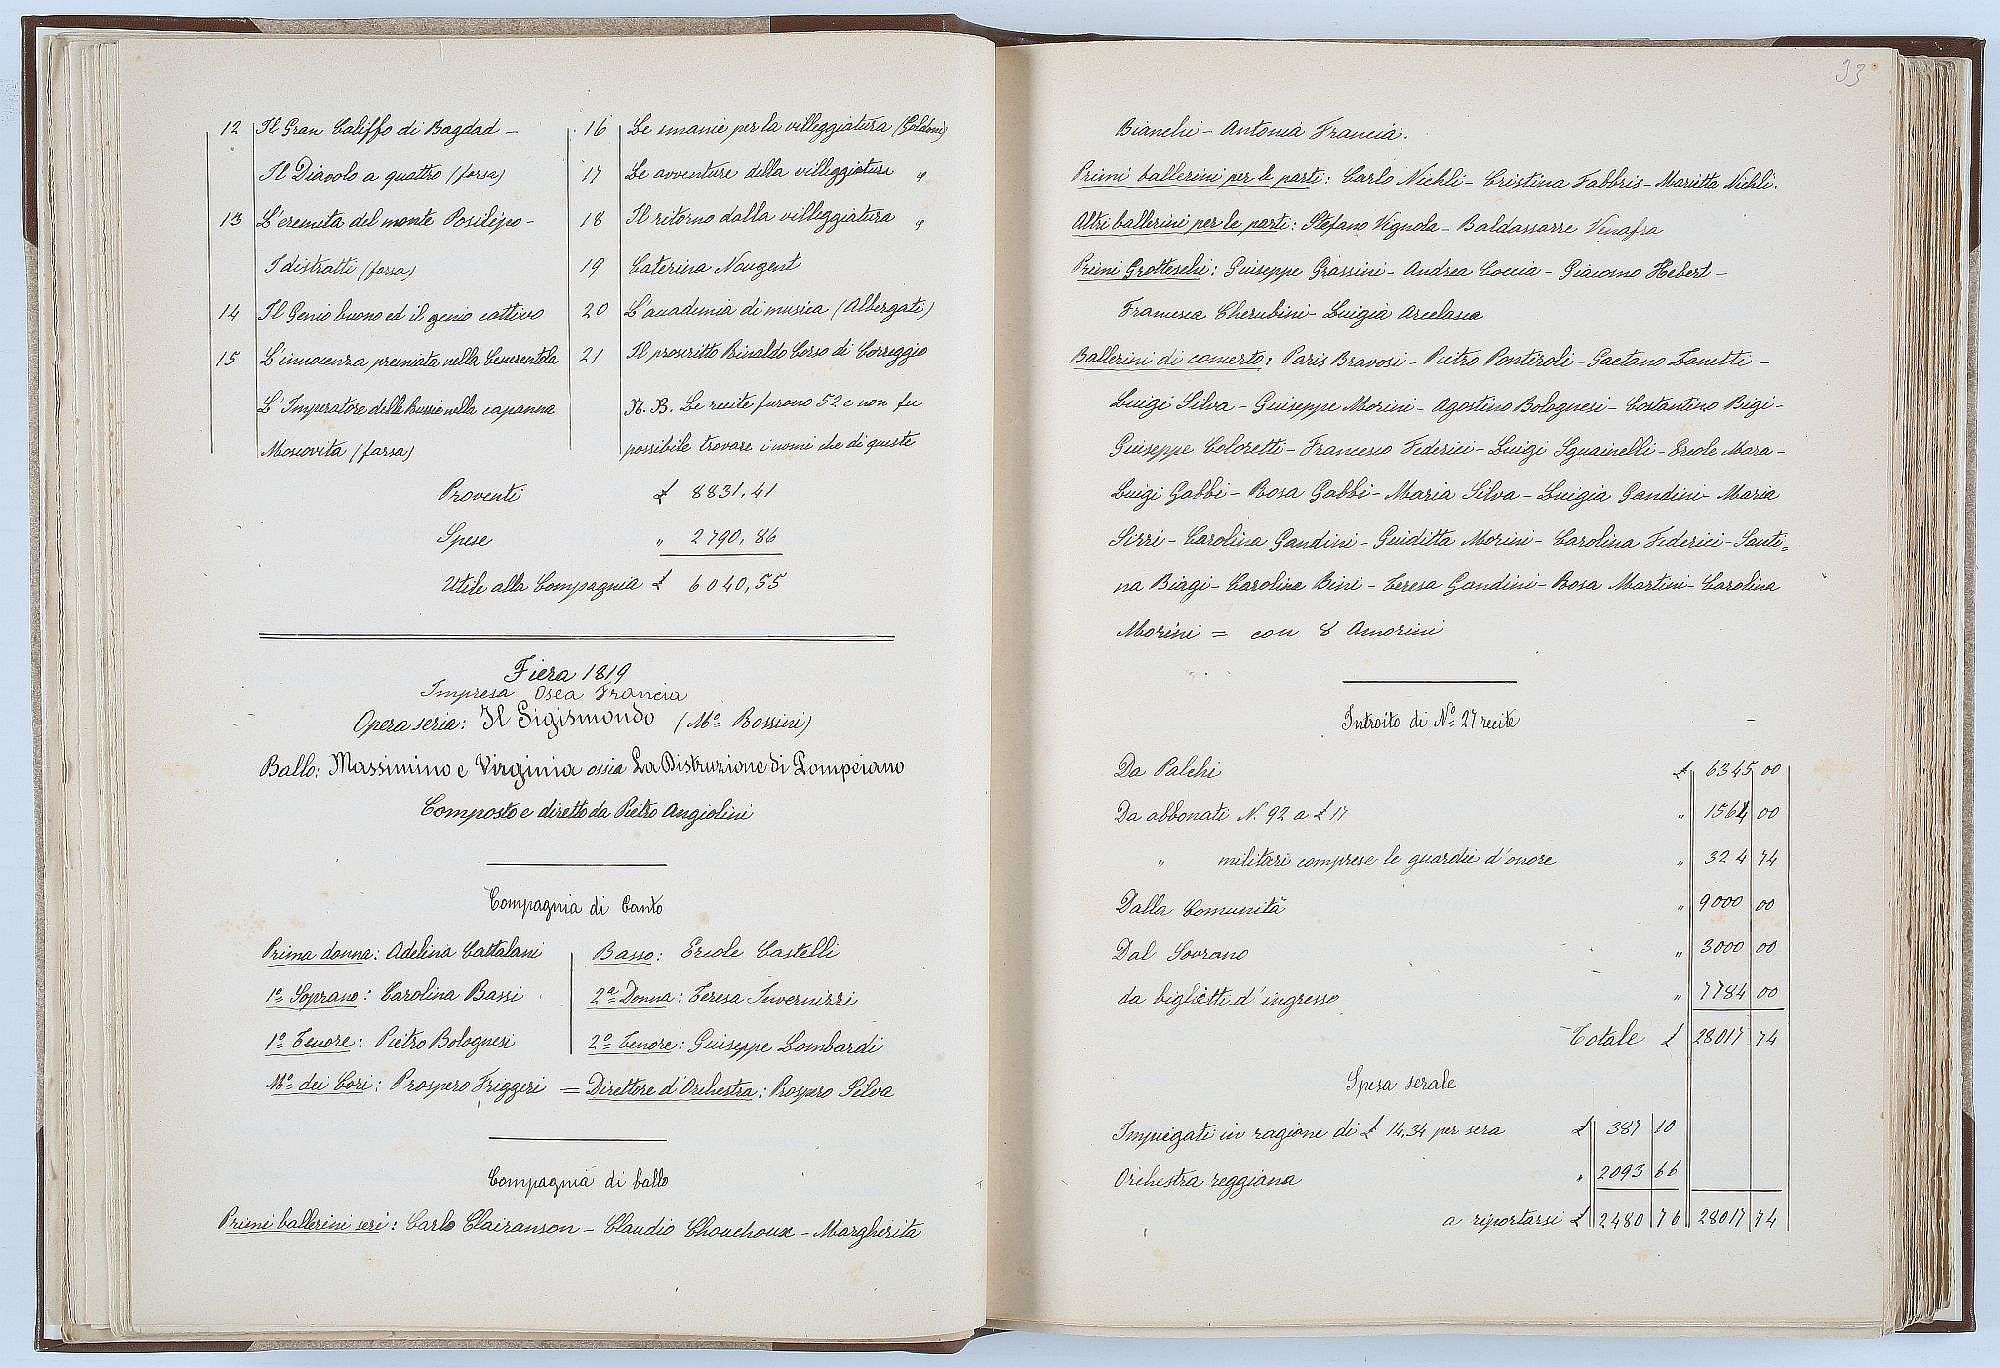 12 Il Gran Califfo di Bagdad –
Il Diavolo a quattro (farsa)
13 L'eremita del monte Posilipo –
I distratti (farsa)
14 Il Genio buono ed il genio cattivo
15 L'innocenza premiata nella Cenerentola
L'Imperatore delle Russie nella capanna
Moscovita (farsa)
16 Le smanie per la villeggiatura (Goldoni)
17 Le avventure della villeggiatura "
18 Il ritorno dalla villeggiatura "
19 Caterina Nougent
20 L'accademia di musica (Albergati)
21 Il proscritto Rinaldo Corso di Correggio
N. B. Le recite furono 52 e non fu
possibile trovare i nomi che di queste
Proventi £ 8831,41
Spese " 2790,86
Utile alla Compagnia £ 6040,55
Fiera 1819
Impresa Osea Francia
Opera seria: Il Sigismondo (Mo. Rossini)
Ballo: Massimino e Virginia ossia La Distruzione di Pompeiano
Composto e diretto da Pietro Angiolini
Compagnia di Canto
Prima donna: Adelina Cattalani
1o Soprano: Carolina Bassi
1o Tenore: Pietro Bolognesi
Basso: Ercole Castelli
2a Donna: Teresa Invernizzi
2o Tenore: Giuseppe Lombardi
Mo dei Cori: Prospero Friggeri = Direttore d'Orchestra: Prospero Silva
Compagnia di ballo
Primi ballerini seri: Carlo Clairanson – Claudio Chouchoux – Margherita
33
Bianchi – Antonia Francia.
Primi ballerini per le parti: Carlo Nichli – Cristina Fabbris – Marietta Nichli.
Altri ballerini per le parti: Stefano Vignola – Baldassarre Venafra
Primi Grotteschi: Giuseppe Grassini – Andrea Coccia – Giacomo Hebert –
Francesca Cherubini – Luigia Arcelasca
Ballerini di concerto: Paris Bravosi – Pietro Pontiroli – Gaetano Zanetti –
Luigi Silva – Giuseppe Morini – Agostino Bolognesi – Costantino Bigi –
Giuseppe Coloretti – Francesco Federici – Luigi Sguainelli – Ercole Mara –
Luigi Gabbi – Rosa Gabbi – Maria Silva – Luigia Gandini – Maria
Sirri – Carolina Gandini – Giuditta Morini – Carolina Federici – Santi=
na Biagi – Carolina Bini – Teresa Gandini – Rosa Martini – Carolina
Morini = con 8 Amorini
Introito di No. 27 recite
Da Palchi £ 6345 00
Da abbonati N. 92 a £ 17 " 1564 00
" militari comprese le guardie d'onore " 324 74
Dalla Comunità " 9000 00
Dal Sovrano " 3000 00
da biglietti d'ingresso " 7784 00
Totale £ 28017 74
Spesa serale
Impiegati in ragione di £ 14,34 per sera £ 387 10
Orchestra reggiana " 2093 66
a riportarsi £ 2480 76 28017 74